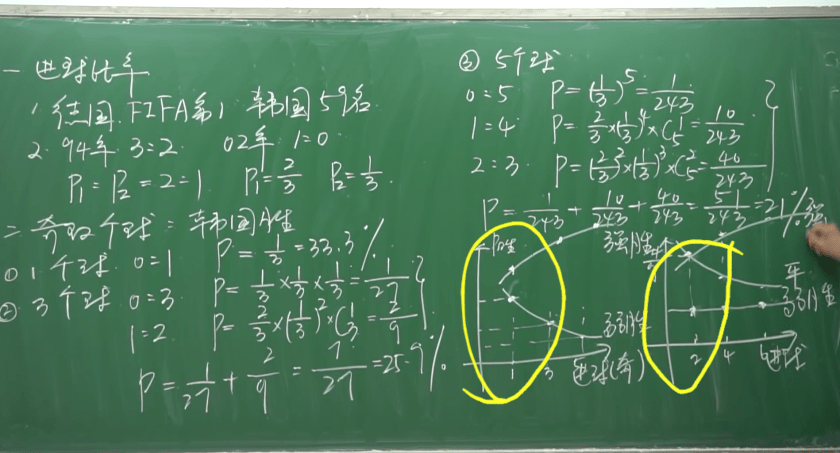 一 进球比率
1. 德国 FIFA第1 韩国59名
2. 94年 3=2. 02年 1=0
P₁=P₂=2=1 P₁=2/3 P₂=1/3
个球=韩国胜
① 1个球 0=1 P=1/3=33.3%
② 3个球 0=3 P=1/3×1/3×1/3=1/27
1=2 P=2/3×(1/3)²×C₃¹=2/9
P=1/27+2/9=7/27=25.9%
③ 5个球
0=5 P=(1/3)⁵=1/243
1=4 P=2/3×(1/3)⁴×C₅¹=10/243
2=3 P=(2/3)²×(1/3)³×C₅²=40/243
P=1/243+10/243+40/243=51/243=21%
P胜
强胜
弱胜
1 3 进球(奇)
强
平
弱胜
2 4 进球